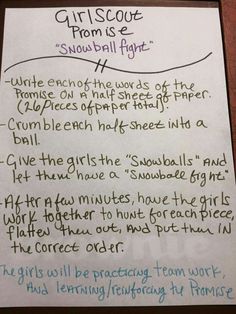 Girl Scout
Promise
"Snowball fight"
-Write each of the words of the
Promise on a half sheet of paper.
(26 pieces of paper total).
-Crumble each half sheet into a
ball.
-Give the girls the "Snowballs" and
let them have a "Snowball fight"
-After a few minutes, have the girls
work together to hunt for each piece,
flatten them out, and put them in
the correct order.
The girls will be practicing team work,
and learning/reinforcing the Promise